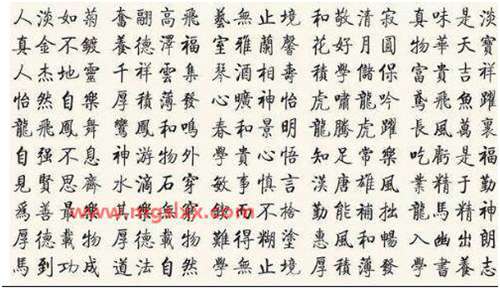 人淡如菊 奮翮高飛 藝無止境 和敬清寂 真味是淡
真金不鍍 養德澤福 室雅蘭馨 花好月圓 物華天寶
人杰地靈 千祥雲集 琴酒相壽 積學儲保 富貴吉祥
怡然自樂 厚積薄發 心曠神怡 虎嘯龍吟 鳶飛魚躍
龍飛鳳舞 鸞鳳和鳴 春和景明 龍騰虎躍 長風萬裏
自强不息 神游物外 學貴心悟 知足常樂 吃虧是福
見賢思齊 水滴石穿 敏事慎言 漢唐雄風 業精于勤
爲善最樂 其樂無窮 而不 勤能補拙 馬精神
厚德載物 厚德載物 難得糊塗 惠風和暢 入幽出朗
馬到功成 道法自然 學無止境 厚積薄發 學書養志